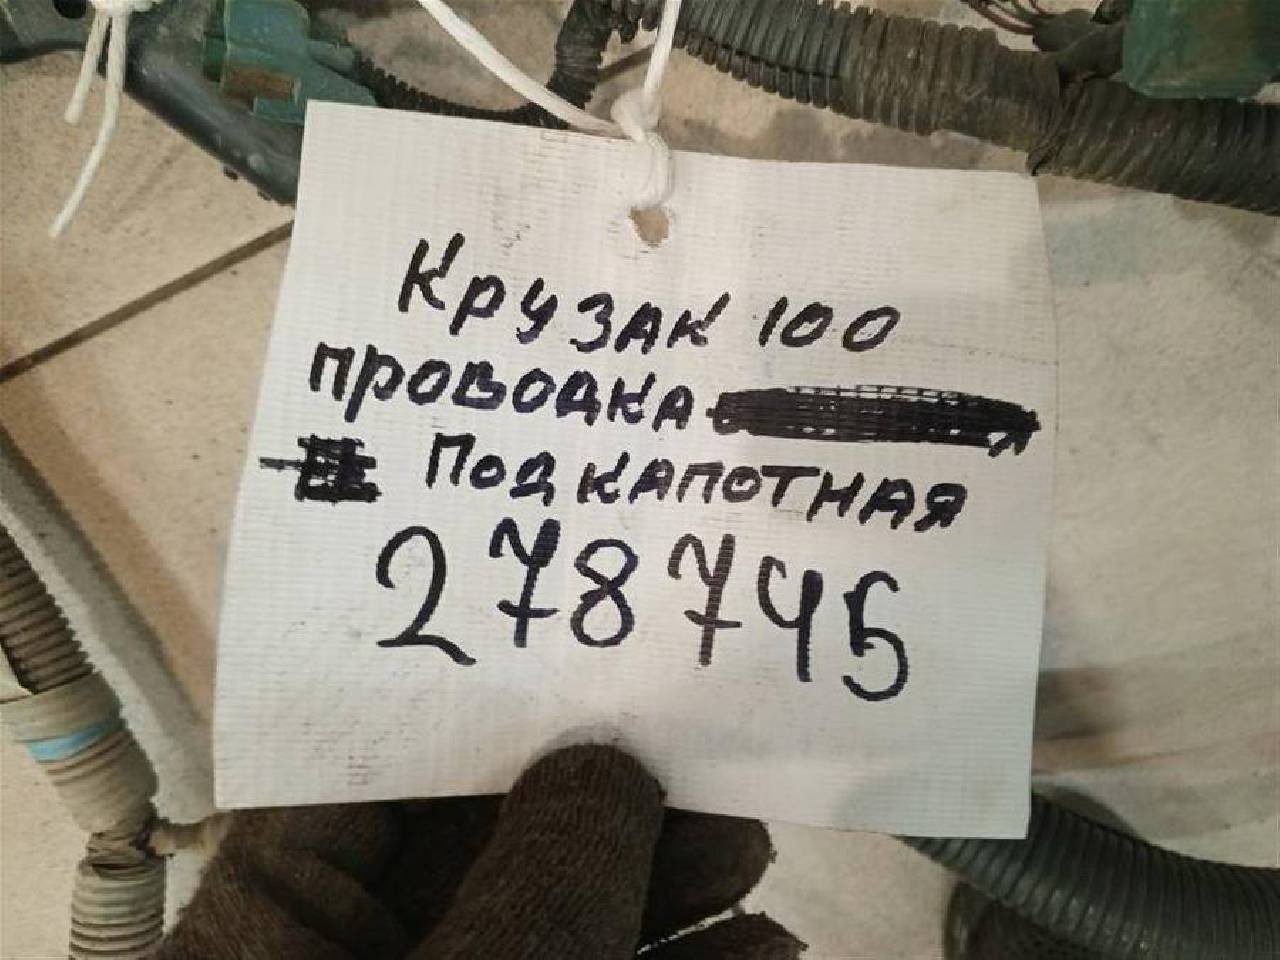 Крузак 100
проводка
Подкапотная
278745